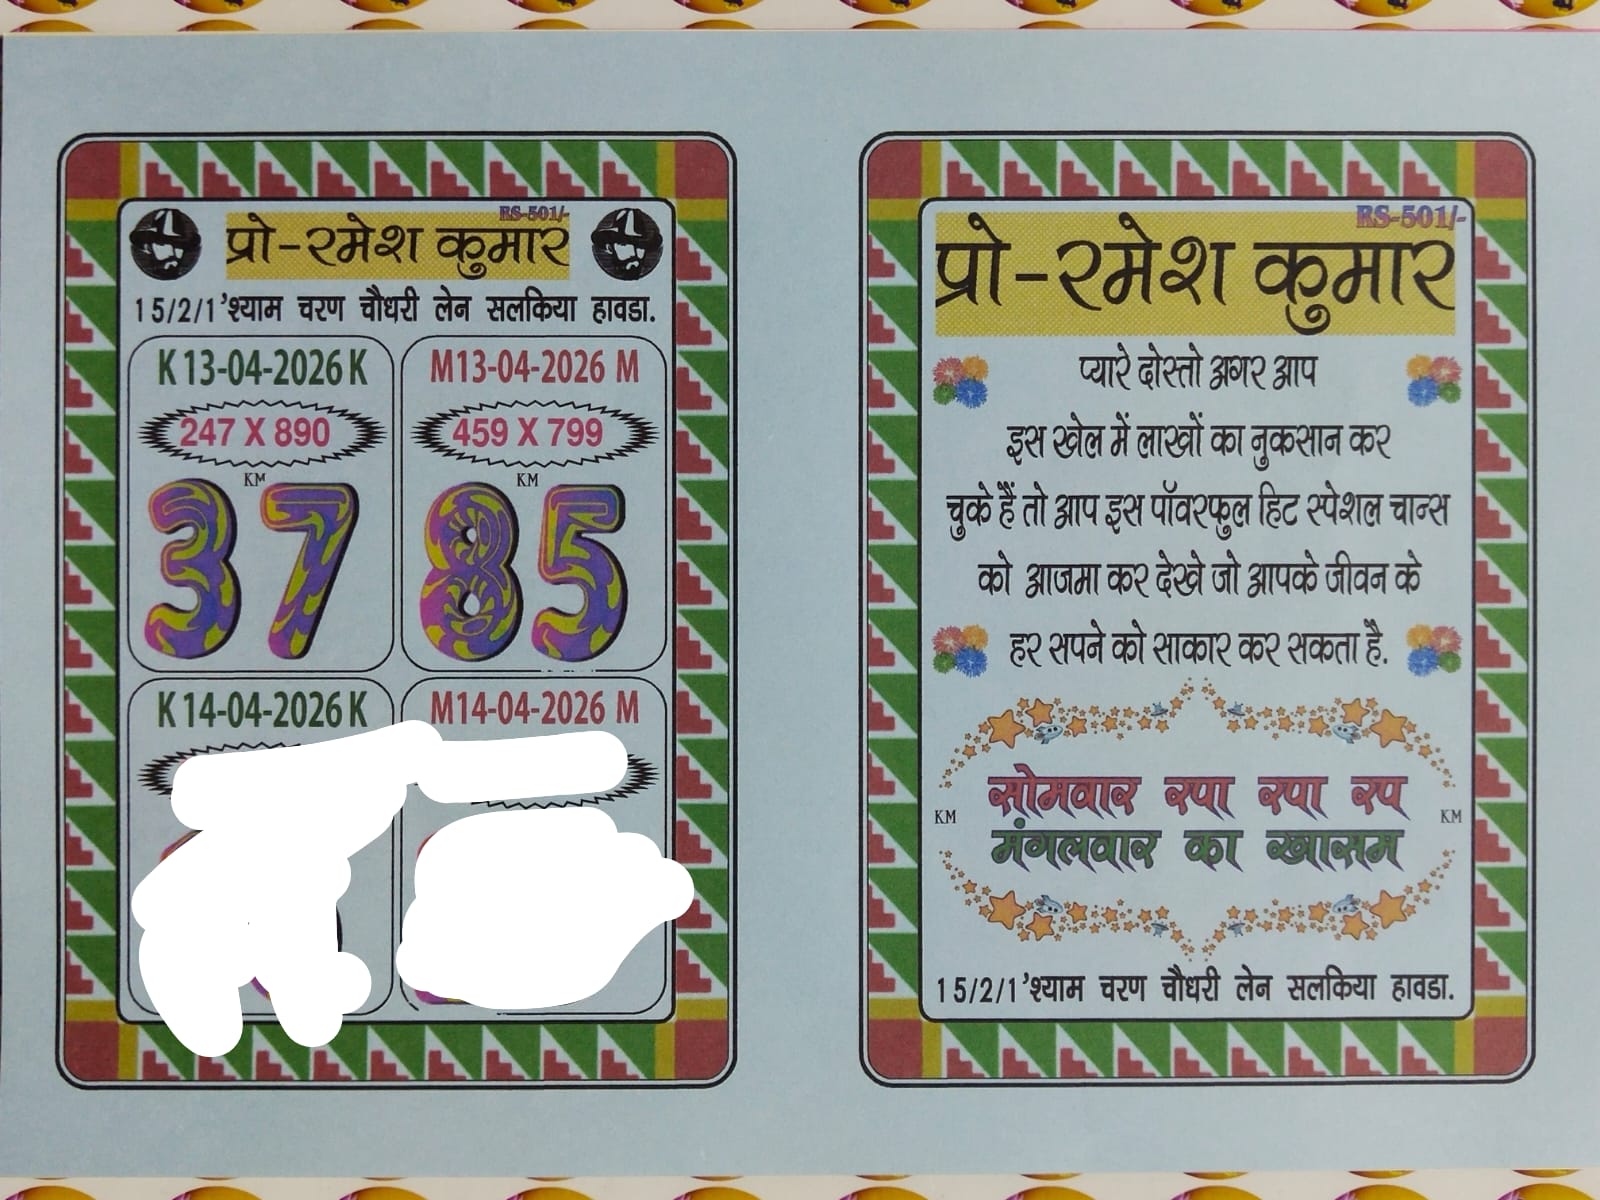 RS-501/-
प्रो-रमेश कुमार
15/2/1'श्याम चरण चौधरी लेन सलकिया हावडा.
K 13-04-2026 K
247 X 890
KM
37
M 13-04-2026 M
459 X 799
KM
85
K 14-04-2026 K
M 14-04-2026 M
RS-501/-
प्रो-रमेश कुमार
प्यारे दोस्तो अगर आप
इस खेल में लाखों का नुकसान कर
चुके हैं तो आप इस पॉवरफुल हिट स्पेशल चान्स
को आजमा कर देखे जो आपके जीवन के
हर सपने को साकार कर सकता है.
सोमवार रपा रपा रप
KM
KM
मंगलवार का खासम
15/2/1'श्याम चरण चौधरी लेन सलकिया हावडा.